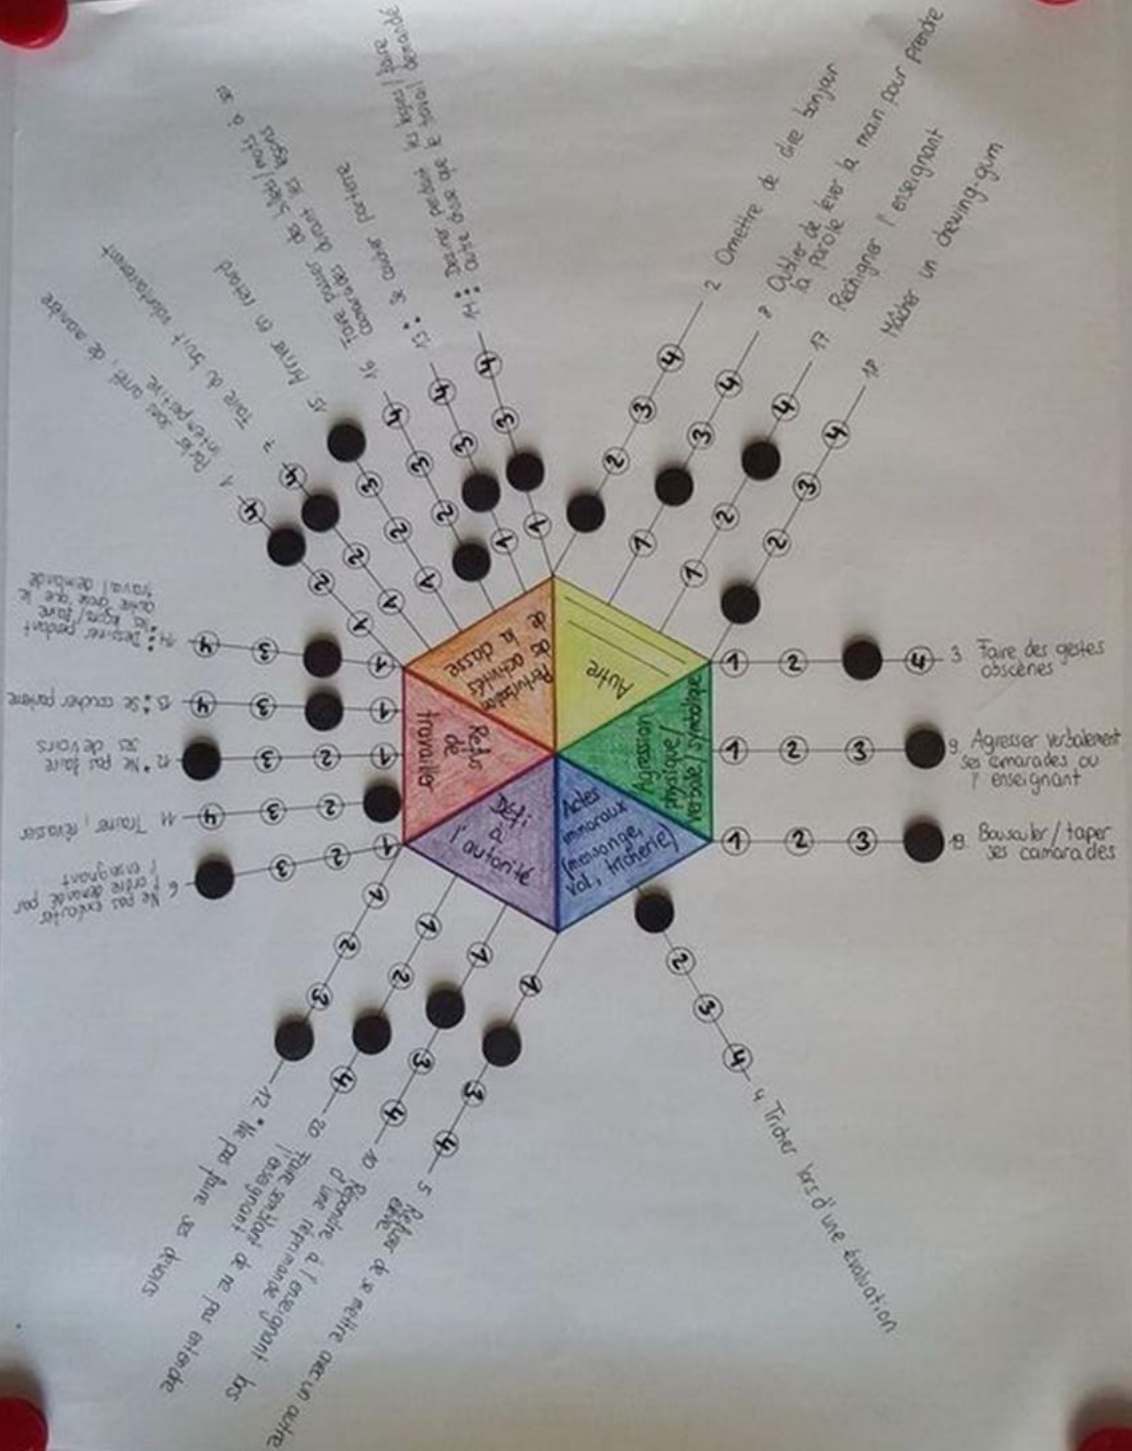 Perturbation
des activités
de la classe
Autre
Agression
physique/
verbale/symbolique
Actes
immoraux
(mensonge,
vol, tricherie)
Défi
à
l'autorité
Refus
de
travailler
1 2 3 4
2 Omettre de dire bonjour
8 Oublier de lever la main pour prendre
la parole
17 Rechigner l'enseignant
18 Mâcher un chewing-gum
3 Faire des gestes
obscènes
9 Agresser verbalement
ses camarades ou
l'enseignant
19 Bousculer/taper
ses camarades
4 Tricher lors d'une évaluation
5 Refuser de se mettre avec un autre
élève
10 Répondre à l'enseignant lors
d'une réprimande
20 Faire semblant de ne pas entendre
l'enseignant
12 * Ne pas faire ses devoirs
6 Ne pas exécuter
l'ordre demandé par
l'enseignant
11 Trainer, rêvasser
12 * Ne pas faire
ses devoirs
13 * Se coucher parterre
14 * Dessiner pendant
les leçons/faire
autre chose que le
travail demandé
1 Parler sans arrêt, de manière
intempestive
7 Faire du bruit volontairement
15 Arriver en retard
16 Faire passer des billets/mots à ses
camarades durant les leçons
13 * Se coucher parterre
14 * Dessiner pendant les leçons/faire
autre chose que le travail demandé